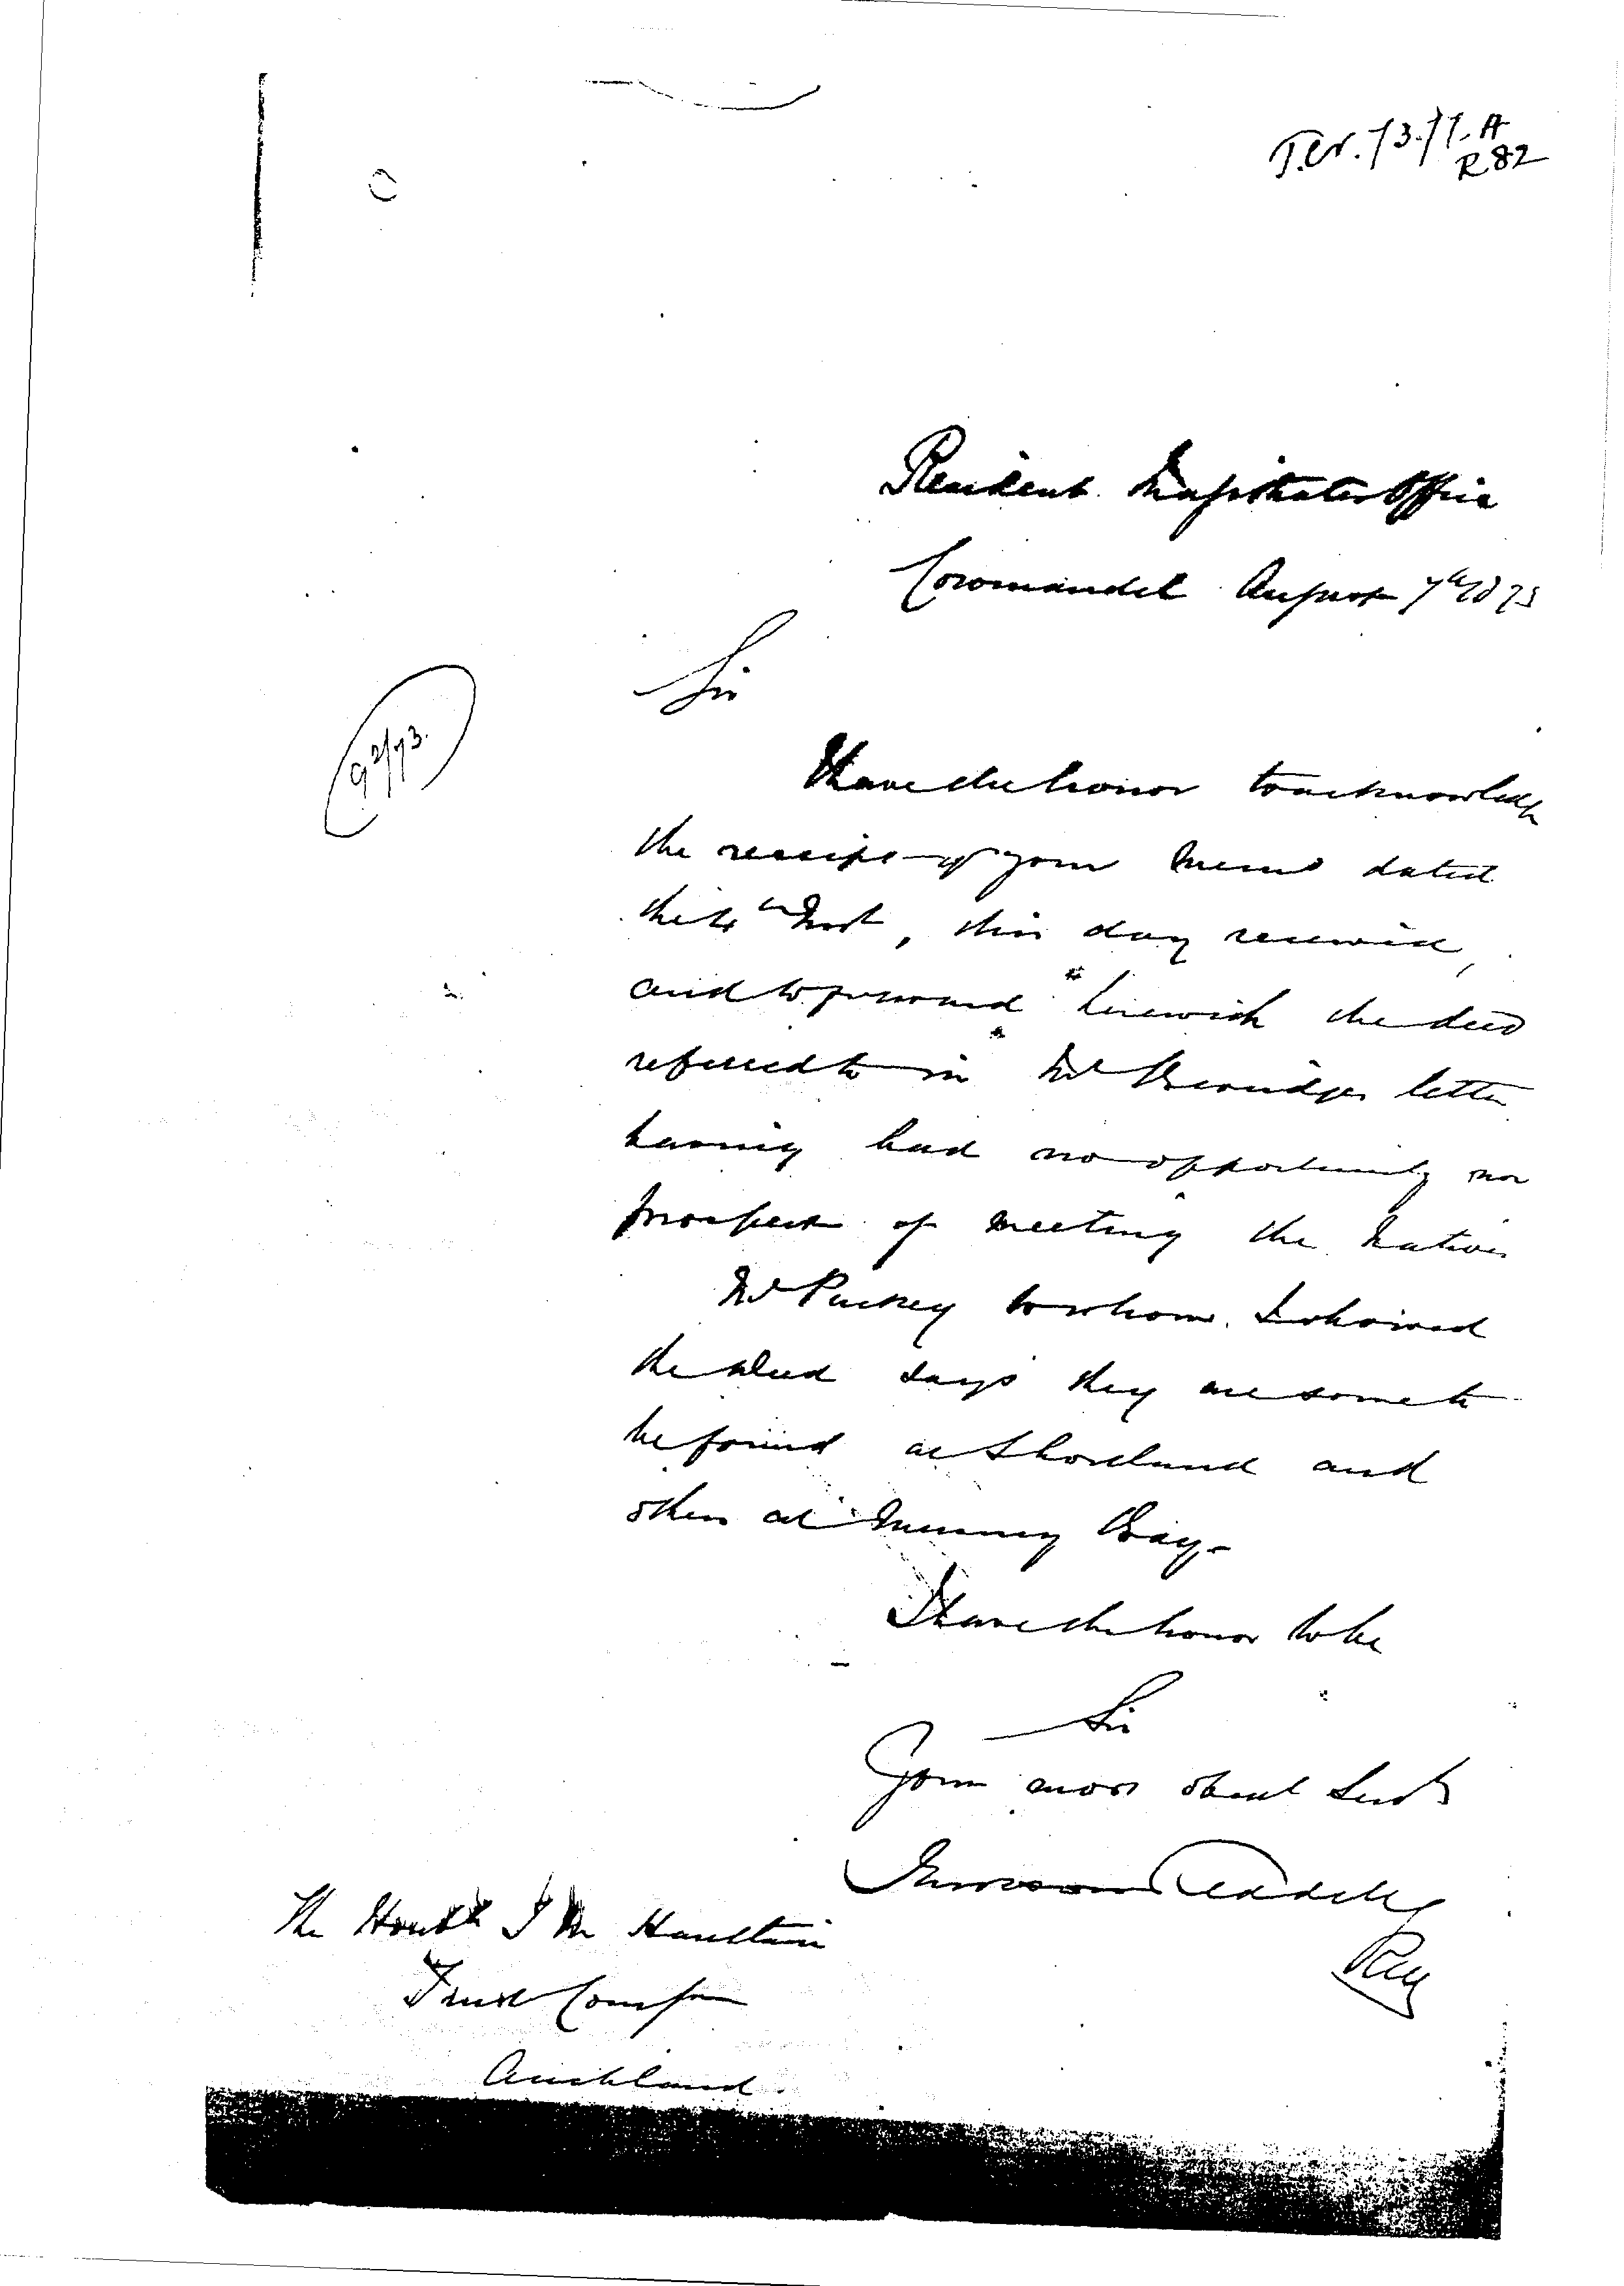 R82
Resident Magistrates Office
Coromandel August 7th 1873
Sir
92/73.
I have the honor to acknowledge
the receipt of your memo dated
the 4th Inst, this day received,
and to forward herewith the deed
referred to in Mr letter
having had no opportunity nor
prospect of meeting the Natives
Mr Puckey to whom I showed
the deed says they are some to
be found at Shortland and
others at Mercury Bay.
I have the honor to be
Sir
Your most obedt Servt
RM
The Honble T M Haultain
Trust Commr
Auckland.